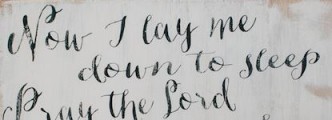 Now I lay me
down to sleep
Pray the Lord